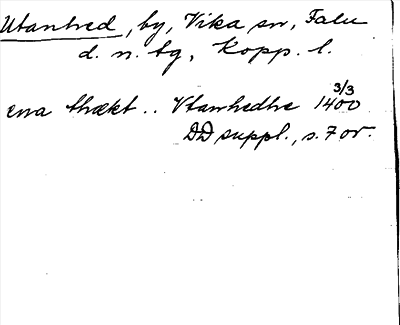 Utanhed, by, Vika sn, Falu
d. n. tg, Kopp. l.
3/3
ena thækt .. Vtanhedhe 1400
DD suppl., s. 7 or.